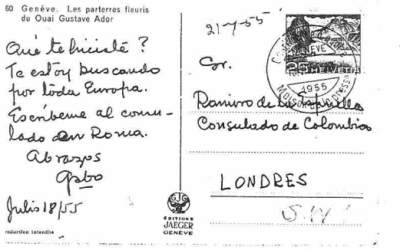 60 Genève. Les parterres fleuris
du Quai Gustave Ador
Qué te hiciste?
Te estoy buscando
por toda Europa.
Escríbeme al consu-
lado en Roma.
Abrazos
Gabo
Julio 18/55
reduction interdite
EDITIONS
JAEGER
GENÈVE
21-7-55
HELVETIA
25
GENÈVE
1955
Sr.
Ramiro de la Espriella
Consulado de Colombia
LONDRES
S.W.1